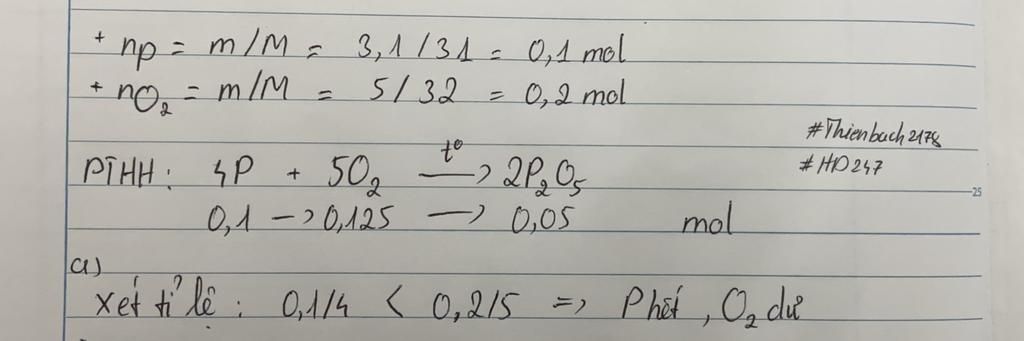 + np = m/M = 3,1/31 = 0,1 mol
+ nO₂ = m/M = 5/32 = 0,2 mol
#Thienbach2178
#HD247
PTHH: 4P + 5O₂ —t°→ 2P₂O₅
25
0,1 → 0,125 → 0,05 mol
a)
Xét tỉ lệ: 0,1/4 < 0,2/5 => P hết, O₂ dư